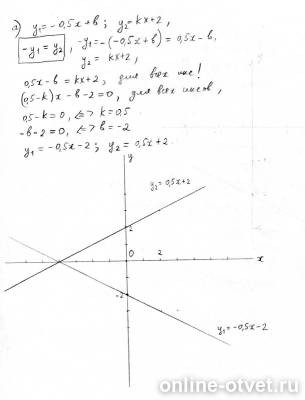 а) y₁ = -0,5x + b; y₂ = kx + 2,
-y₁ = y₂, -y₁ = -(-0,5x + b) = 0,5x - b.
y₂ = kx + 2,
0,5x - b = kx + 2, для всех икс!
(0,5 - k)x - b - 2 = 0, для всех иксов,
0,5 - k = 0, <=> k = 0,5.
-b - 2 = 0, <=> b = -2
y₁ = -0,5x - 2; y₂ = 0,5x + 2.
y
y₂ = 0,5x + 2
2
0
2
x
-2
y₁ = -0,5x - 2
online-otvet.ru